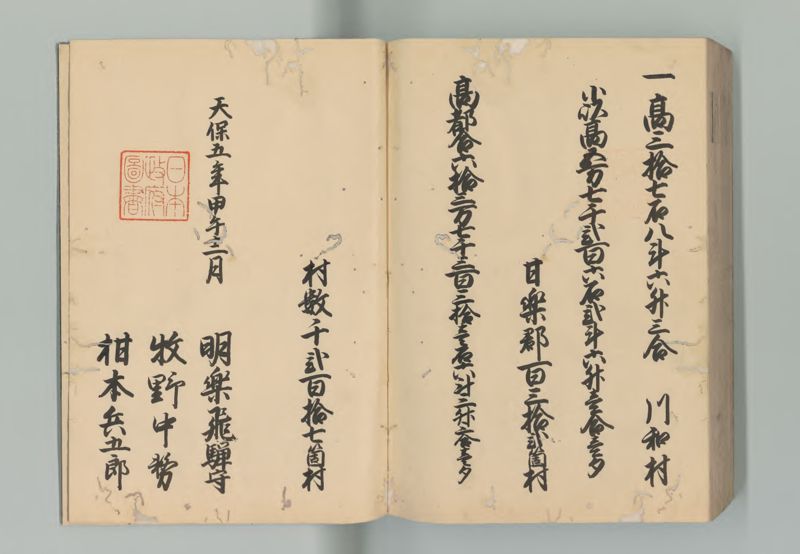 一高三拾七石八斗六升三合 川和村
小以高五万七千弐百六石弐斗六升壱合壱勺
甘楽郡百三拾弐箇村
高都合六拾三万七千三百三拾壱石六斗三升
村数千弐百拾七箇村
天保五年甲午十二月
明楽飛騨守
牧野中務
柑本兵五郎
日本
政府
圖書